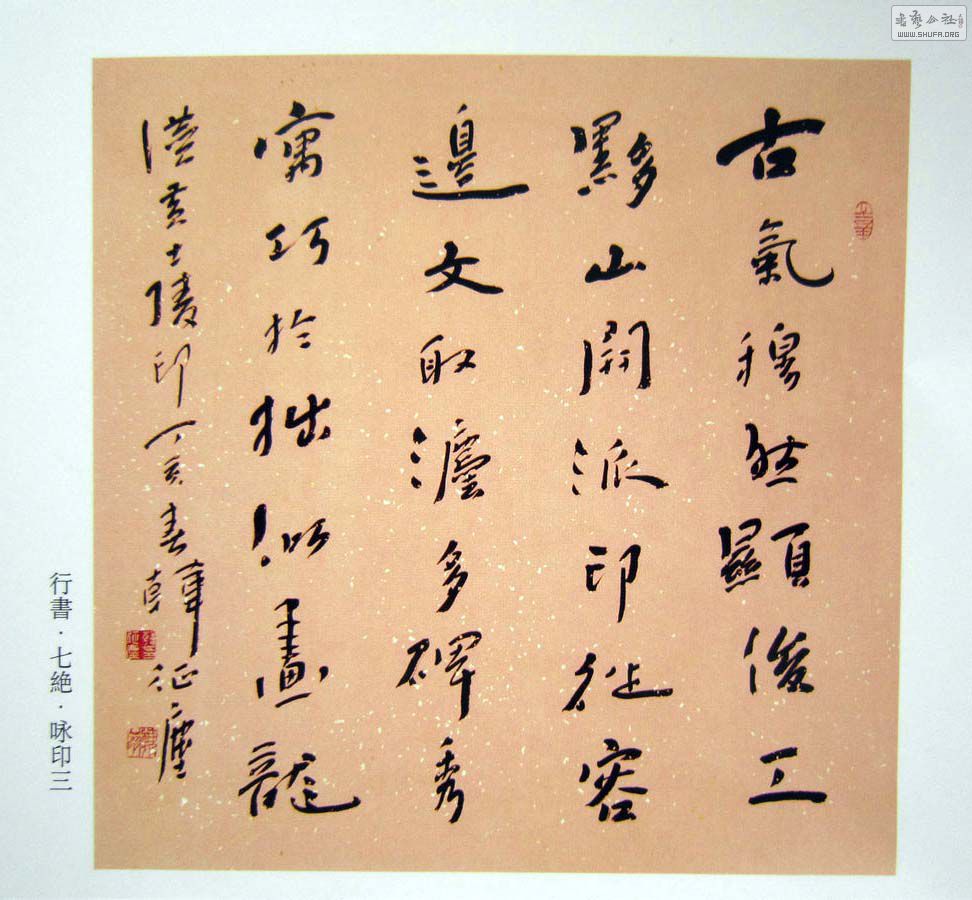 古氣穆然顯俊工
黟山開派印從容
邊文取瀘多碑秀
寓巧於拙似畫龍
讀黃士陵印丁亥春韓征塵
行書·七絕·咏印三
WWW.SHUFA.ORG